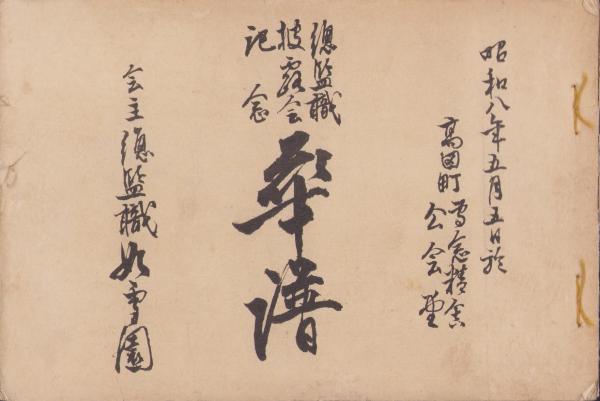 昭和八年五月五日於
高田町 専念精舎
公会堂
總監職
披露会
記念
華譜
会主 總監職 如雪園